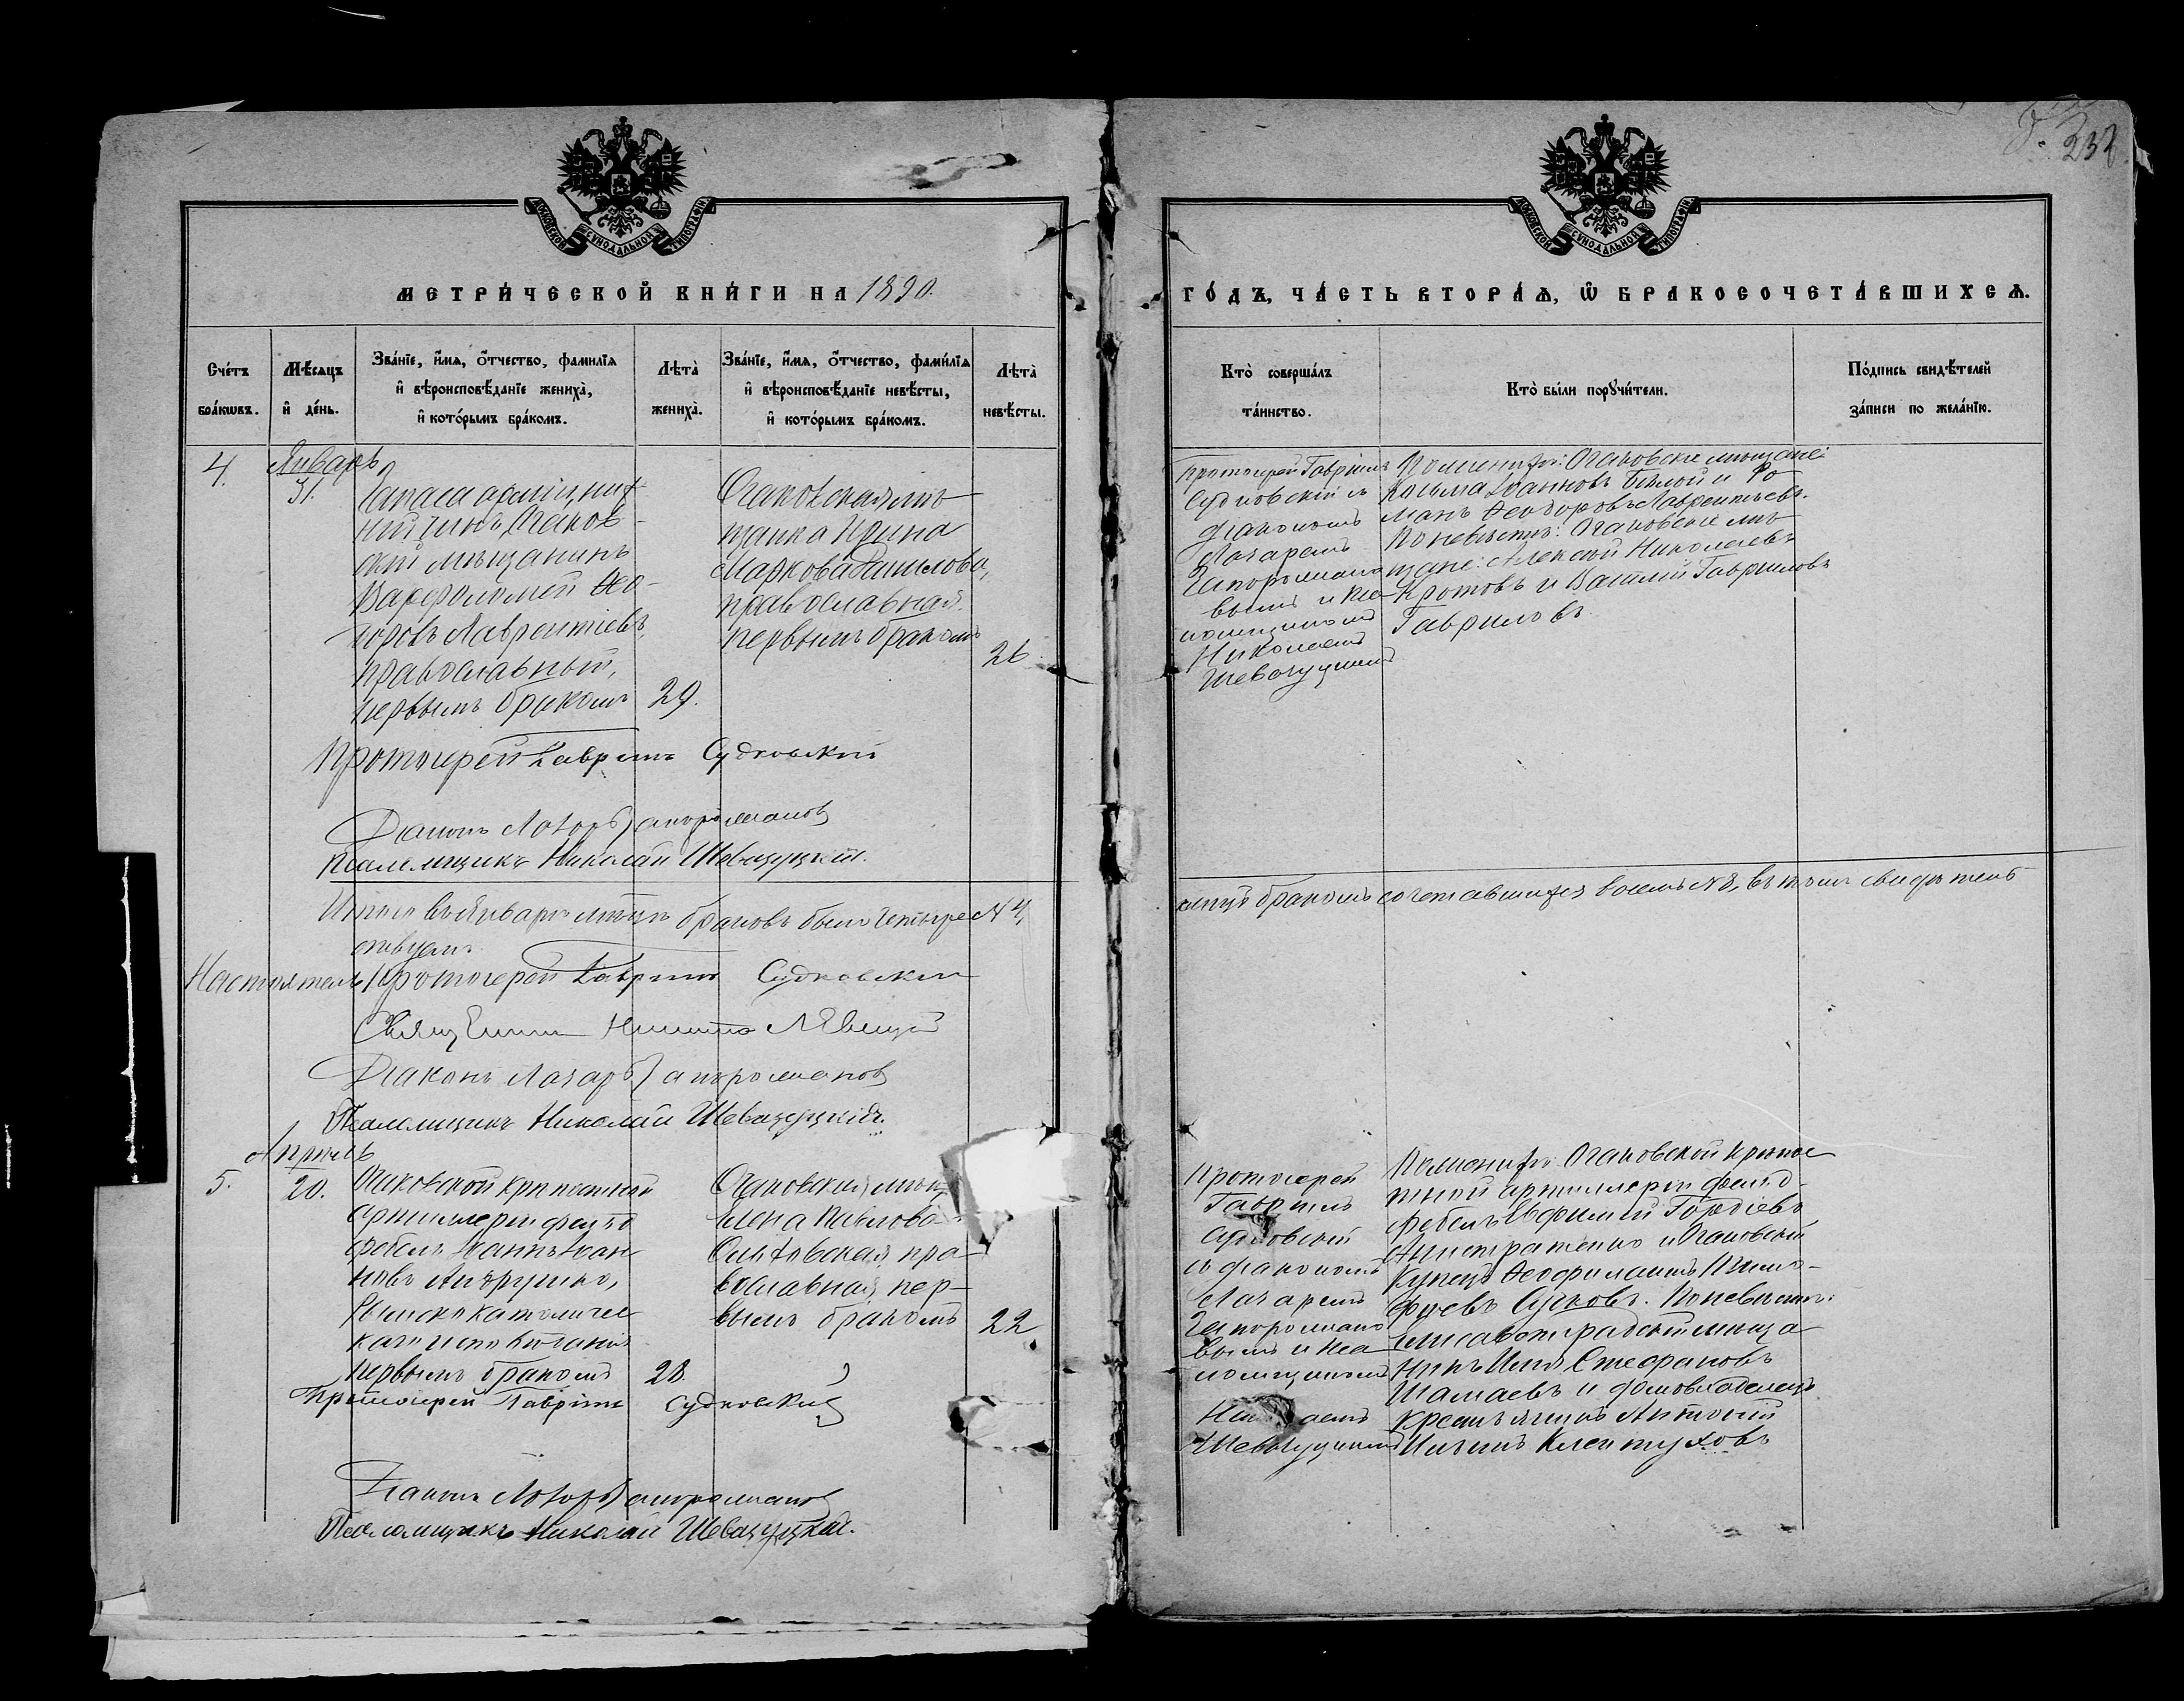 232
МОСКОВСКОЙ СУНОДАЛЬНОЙ ТИПОГРАФІИ
МЕТРИ́ЧЕСКОЙ КНИ́ГИ НА 1890.
Сче́тъ бра́кѡвъ.
Мѣ́сяцъ и҆ де́нь.
Зва́нїе, и҆́мѧ, ѻ҆́тчество, фами́лїѧ
и҆ вѣроисповѣ́данїе жениха̀,
и҆ кото́рымъ бра́комъ.
Лѣта̀ жениха̀.
Зва́нїе, и҆́мѧ, ѻ҆́тчество, фами́лїѧ
и҆ вѣроисповѣ́данїе невѣ́сты,
и҆ кото́рымъ бра́комъ.
Лѣта̀ невѣ́сты.
4.
Январь
31.
Запаса арміи, ниж-
ній чинъ, Очаков-
скій мѣщанинъ
Варфоломей Ѳео-
доровъ Лаврентіевъ,
православный,
первымъ бракомъ
29.
Очаковская мѣ-
щанка Ирина
Маркова Данилова,
православная.
первымъ бракомъ
26.
Протоіерей Гавріилъ Судковскій
Діаконъ Лазарь Запоромановъ
Псаломщикъ Николай Шевазуцкій.
Итого въ Январѣ мѣсяцѣ браковъ было четыре № 4,
ствуемъ.
Настоятель Протоіерей Гавріилъ Судковскій
Священникъ Никита Левицкій
Діаконъ Лазарь Запоромановъ
Псаломщикъ Николай Шевазуцкій.
Апрѣль
5.
20.
Очаковской крѣпостной
артиллеріи фельд
фебель Іоаннъ Іоан
новъ Андрушко,
Римско католичес
каго исповѣданія
первымъ бракомъ
28.
Очаковская мѣщ
Елена Павлова
православная, пер-
вымъ бракомъ
22.
Протоіерей Гавріилъ Судковскій
Діаконъ Лазарь Запоромановъ
Псаломщикъ Николай Шевазуцкій.
МОСКОВСКОЙ СУНОДАЛЬНОЙ ТИПОГРАФІИ
ГО́ДЪ, ЧА́СТЬ ВТОРА́Ѧ, Ѡ҆ БРАКОСОЧЕТА́ВШИХСѦ.
Кто̀ соверша́лъ та́инство.
Кто̀ бы́ли порꙋчи́тели.
По́дпись свидѣ́телей за́писи по жела́нїю.
Протоіерей Гавріилъ
Судковскій съ
діакономъ
Лазаремъ
Запоромано
вымъ и пса
ломщикомъ
Николаемъ
Шевазуцкимъ
По женихѣ: Очаковскіе мѣщане:
Козьма Іоанновъ Бѣлой и Ро
манъ Ѳеодоровъ Лаврентьевъ.
По невѣстѣ: Очаковскіе мѣ
щане: Алексѣй Николаевъ
Кротовъ и Василій Гавриловъ
Гавриловъ.
лицъ бракомъ сочетавшихся восемь № 8, въ томъ свидѣтель
Протоіерей
Гавріилъ
Судковскій
съ діакономъ
Лазаремъ
Запоромано
вымъ и пса
ломщикомъ
Николаемъ
Шевазуцкимъ
По женихѣ: Очаковской крѣпос
тной артиллеріи фельд-
фебель Евфимій Гордіевъ
и Очаковскій
купецъ Ѳеофилактъ
Сучковъ. По невѣстѣ:
Елисаветградскій мѣща
нинъ Илія Стефановъ
Шамаевъ и домовладѣлецъ
крестьянинъ Антоній
Ильинъ Клептуховъ